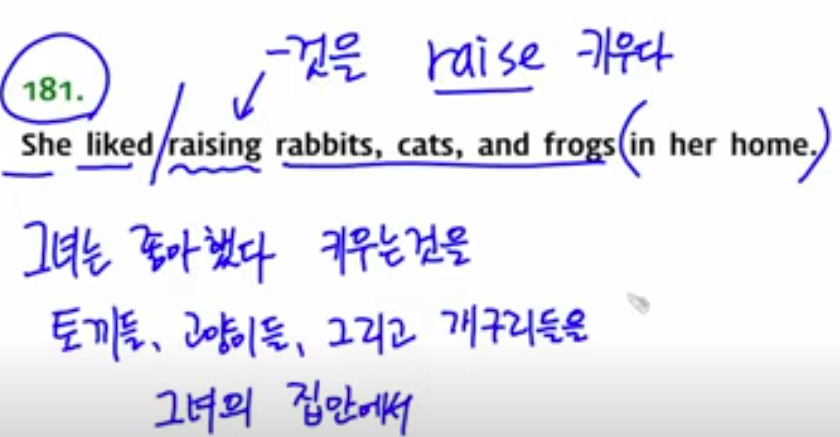 -것을 raise 키우다
181.
She liked raising rabbits, cats, and frogs in her home.
그녀는 좋아했다 키우는것을
토끼들, 고양이들, 그리고 개구리들을
그녀의 집안에서